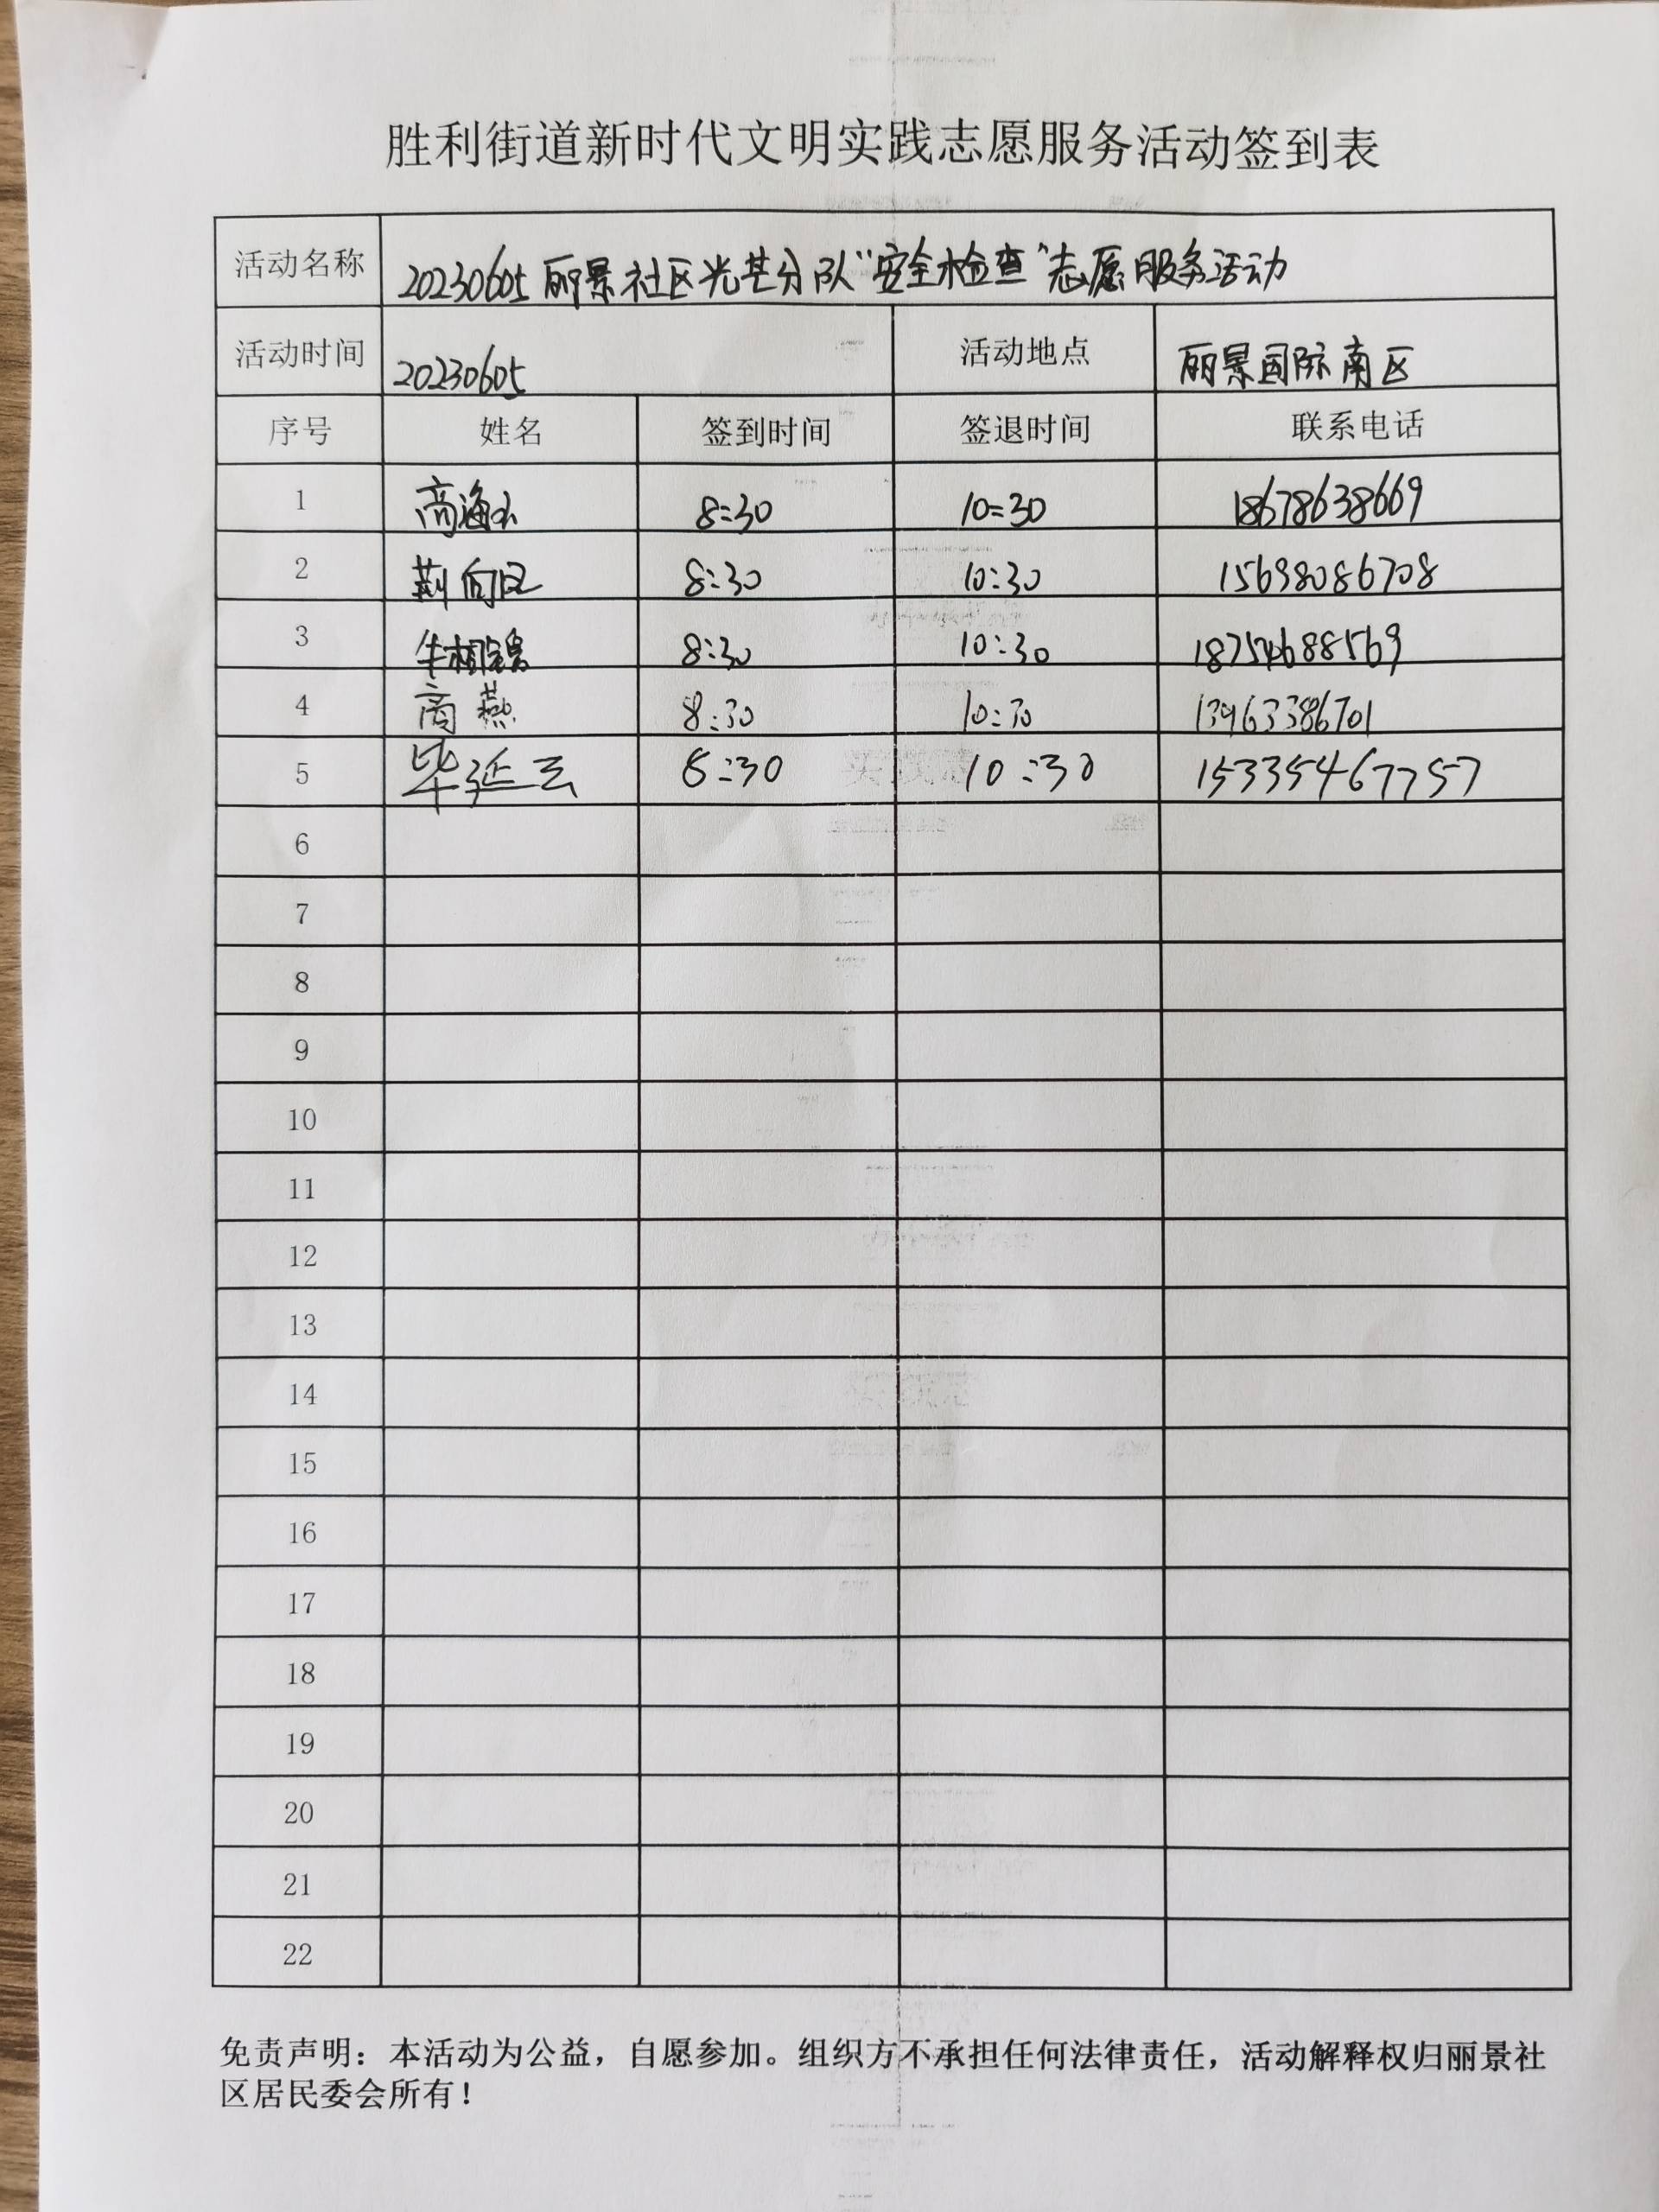 胜利街道新时代文明实践志愿服务活动签到表
活动名称 20230605丽景社区光芒分队“安全检查”志愿服务活动
活动时间 20230605 活动地点 丽景国际南区
序号 姓名 签到时间 签退时间 联系电话
1 高海 8:30 10:30 18678638669
2 荆向 8:30 10:30 15698086708
3 牛相 8:30 10:30 18754688569
4 高燕 8:30 10:30 13963386701
5 毕延云 8:30 10:30 15335467757
6
7
8
9
10
11
12
13
14
15
16
17
18
19
20
21
22
免责声明：本活动为公益，自愿参加。组织方不承担任何法律责任，活动解释权归丽景社
区居民委会所有！